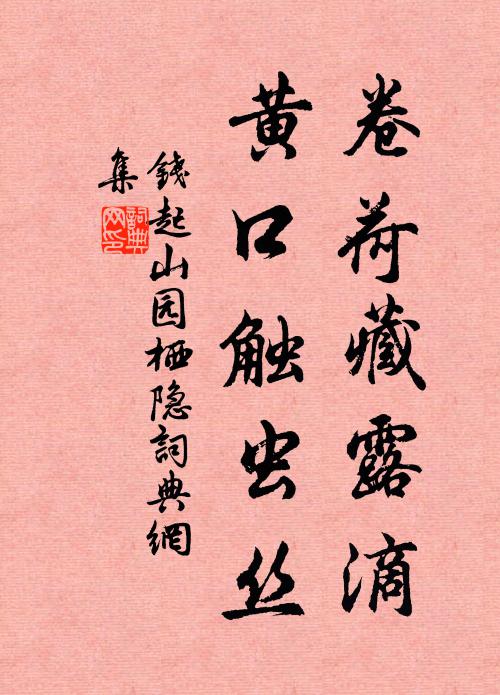 卷荷藏露滴
黄口触虫丝
錢起山园栖隐詞典網
集
詞典
网印